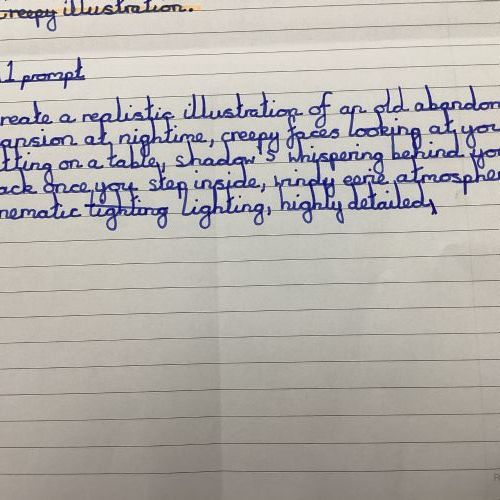 creepy illustration.
1 prompt
reate a replistic illustration of an old abandon
ansion at nightime, creepy faces looking at you
tting on a table, shadow's whispering behind you
ack once you step inside, windy eerie atmospher
nematic tighting lighting, highly detailed,